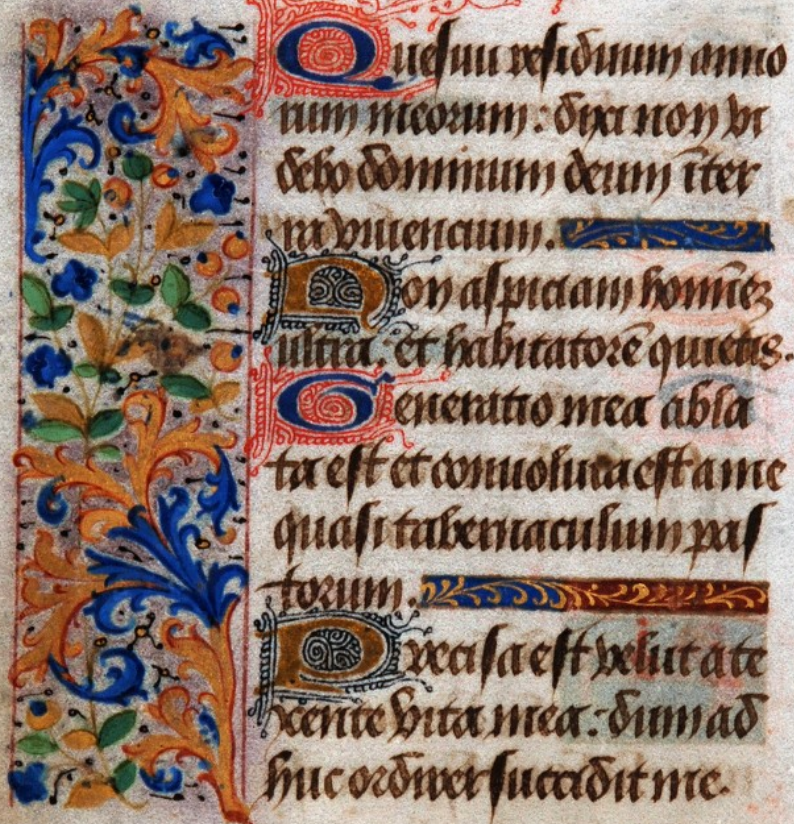 Quesiui residuum anno
rum meorum : dixi non vi
debo dominum deum īter
ra viuencium.
Non aspiciam homīez
ultra. et habitatorē quietis.
Generatio mea abla
ta est et conuoluta est a me
quasi tabernaculum pas
torum.
Precisa est velut a te
xente vita mea : dum ad
huc ordirer succidit me.